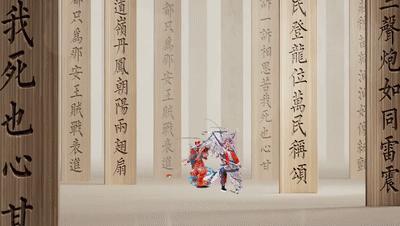 聲炮如同雷震
民登龍位萬民稱頌
訴一訴相思苦我死也心甘
都只爲那安王賊戰表進
道嶺丹鳳朝陽兩翅扇
都只爲那安王賊戰表進
我死也心甘